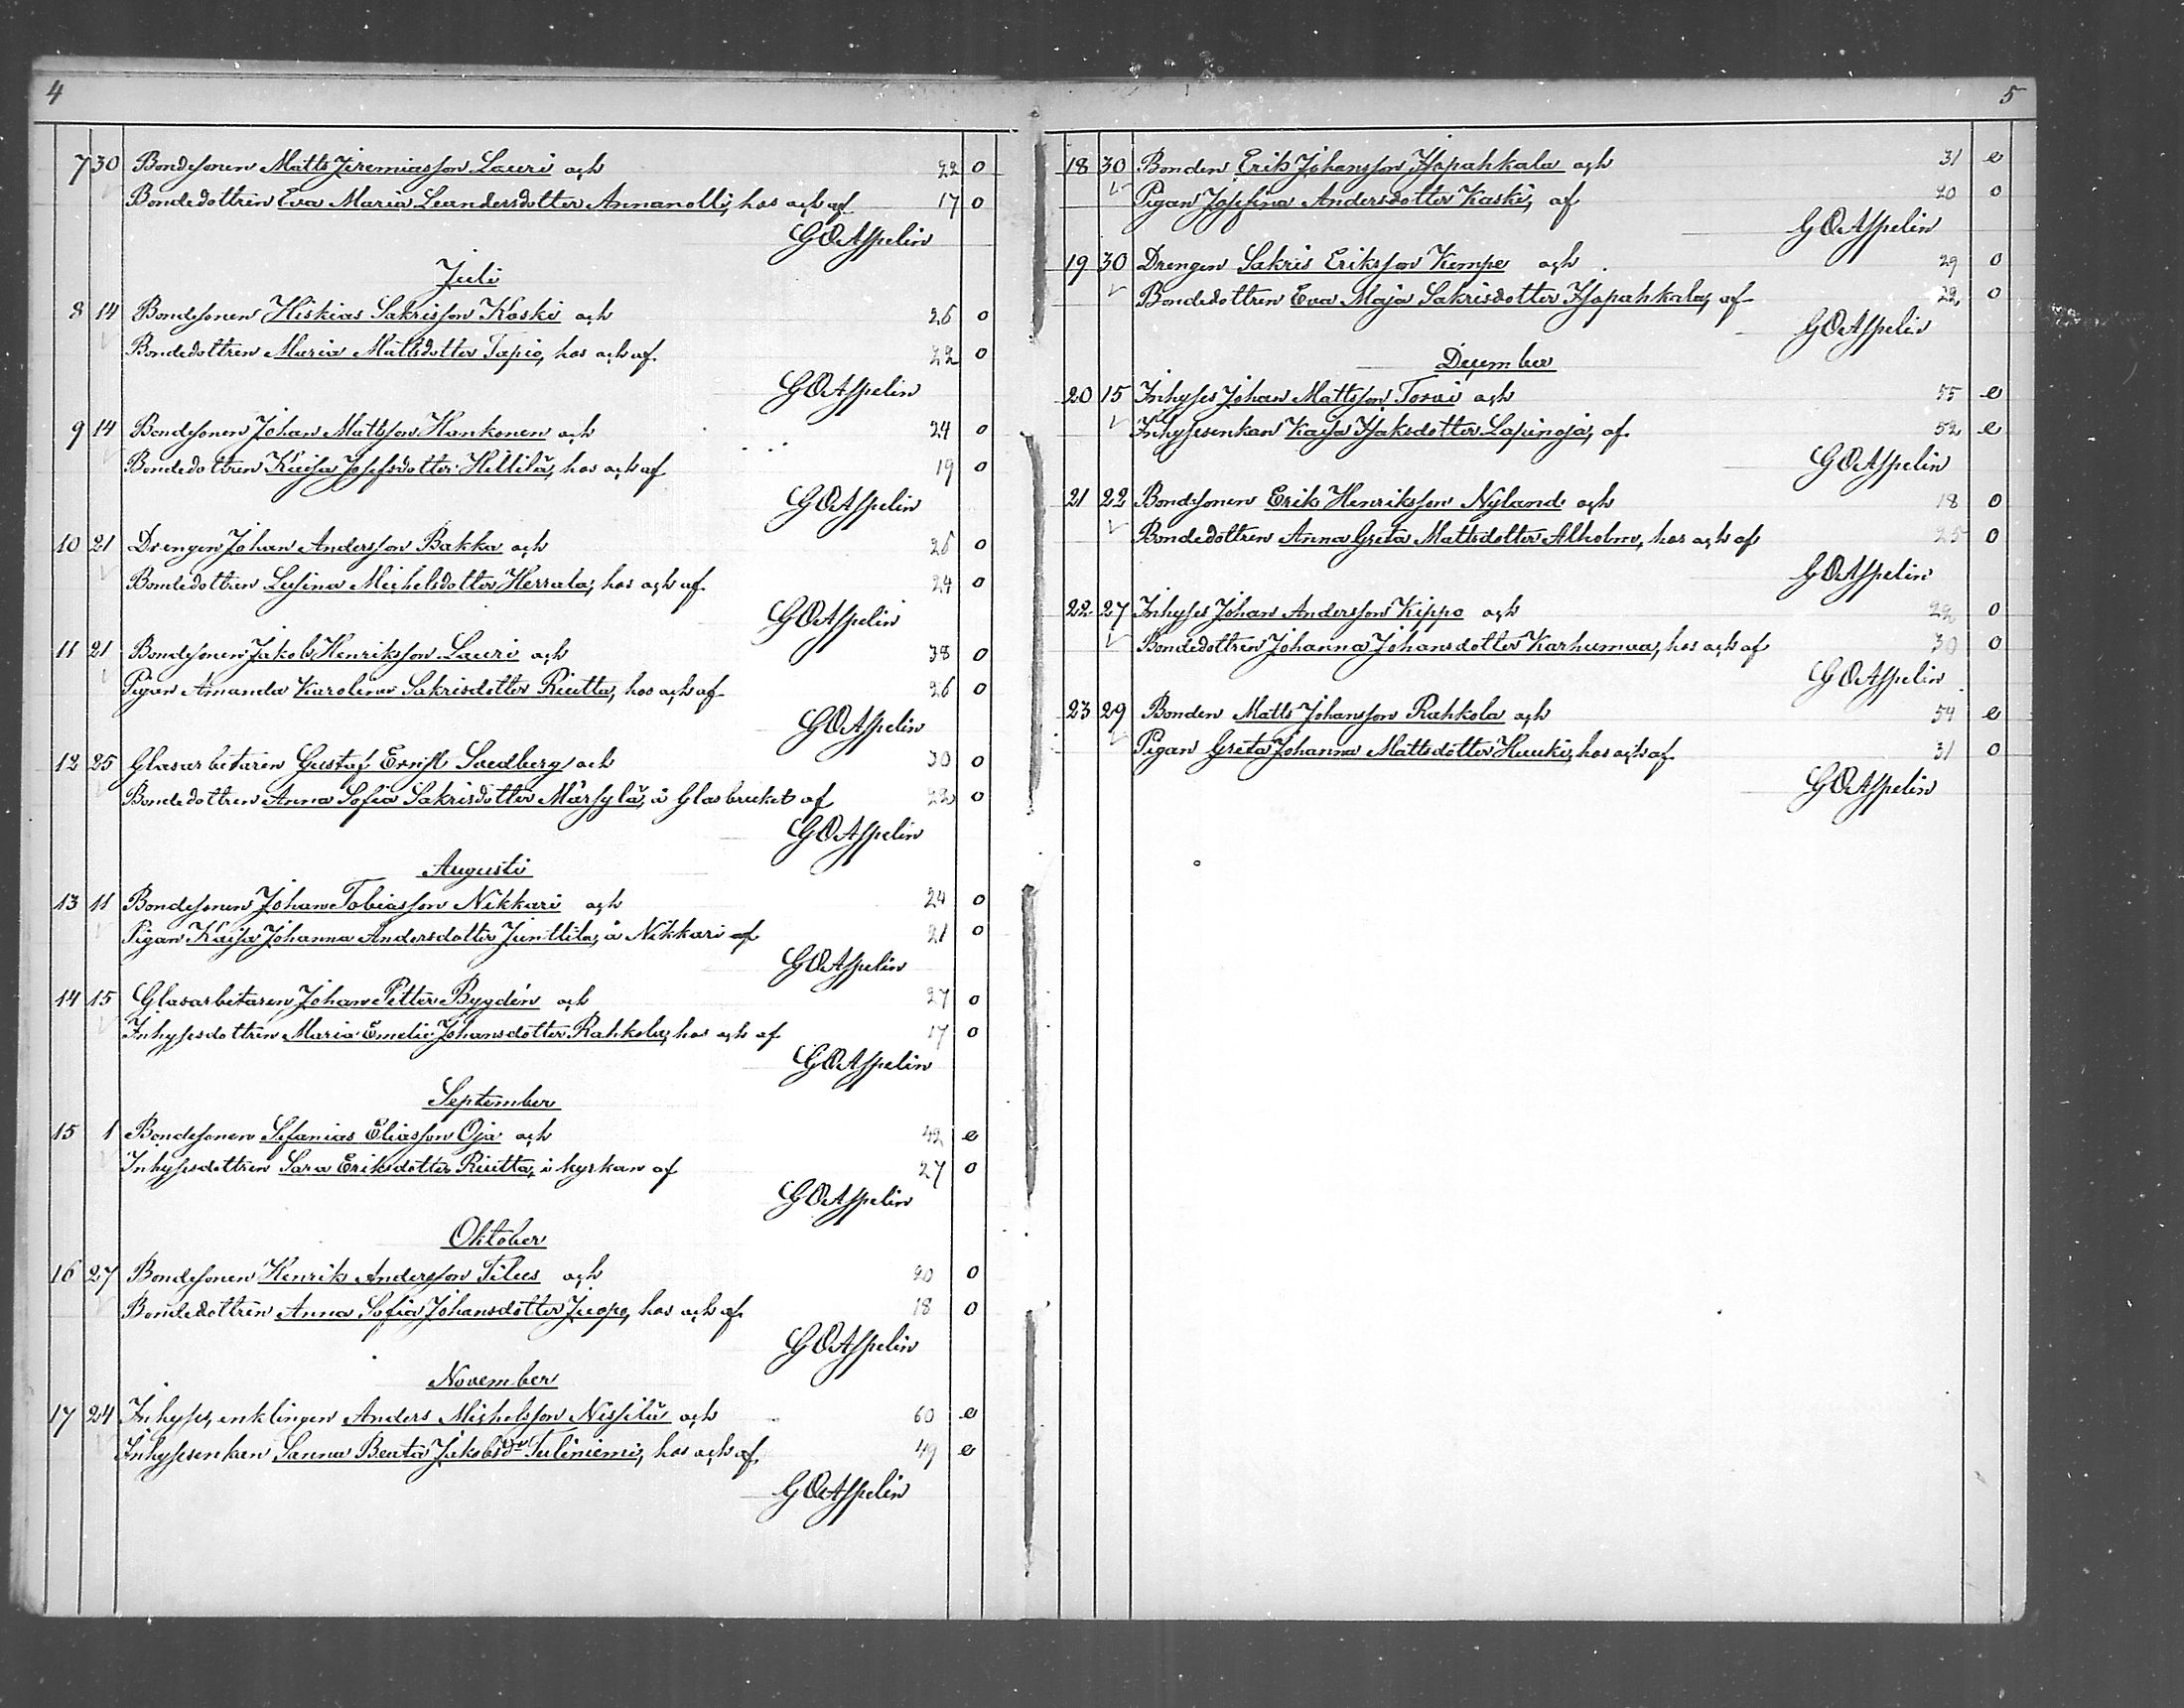 4
7 30 Bondesonen Matts Jeremiasson Lauri och 22 o
Bondedottren Eva Maria Leandersdotter Annanolli, hos och af 17 o
GOAspelin
Juli
8 14 Bondesonen Hiskias Sakrisson Koski och 26 o
Bondedottren Maria Mattsdotter Tapio, hos och af 22 o
GOAspelin
9 14 Bondesonen Johan Mattsson Hankonen och 24 o
Bondedottren Kaisa Josefsdotter Hillilä, hos och af 19 o
GOAspelin
10 21 Drengen Johan Andersson Bakka och 26 o
Bondedottren Lusina Michelsdotter Herrala, hos och af 24 o
GOAspelin
11 21 Bondesonen Jakob Henriksson Lauri och 38 o
Pigan Amanda Karolina Sakrisdotter Riutta, hos och af 26 o
GOAspelin
12 25 Glasarbetaren Gustaf Ernst Sundberg och 30 o
Bondedottren Anna Sofia Sakrisdotter Märsylä, å Glasbruket af 22 o
GOAspelin
Augusti
13 11 Bondesonen Johan Tobiasson Nikkari och 24 o
Pigan Kaisa Johanna Andersdotter Junttila, å Nikkari af 21 o
GOAspelin
14 15 Glasarbetaren Johan Petter Bygdén och 27 o
Inhysesdottren Maria Emelie Johansdotter Rahkola, hos och af 17 o
GOAspelin
September
15 1 Bondesonen Sefanias Eliasson Oja och 42 e
Inhysesdottren Sara Eriksdotter Riutta, i kyrkan af 27 o
GOAspelin
Oktober
16 27 Bondesonen Henrik Andersson Tilus och 20 o
Bondedottren Anna Sofia Johansdotter Juopo, hos och af 18 o
GOAspelin
November
17 24 Inhyses enklingen Anders Michelsson Nissilä och 60 e
Inhysesenkan Sanna Beata Jakobsdr Tuliniemi, hos och af 49 e
GOAspelin
5
18 30 Bonden Erik Johansson Isopahkala och 31 e
Pigan Josefina Andersdotter Kaski, af 20 o
GOAspelin
19 30 Drengen Sakris Eriksson Kempe och 29 o
Bondedottren Eva Maja Sakrisdotter Isopahkala, af 22 o
GOAspelin
December
20 15 Inhyses Johan Mattsson Torvi och 55 e
Inhysesenkan Kaisa Isaksdotter Lapinoja, af 52 e
GOAspelin
21 22 Bondesonen Erik Henriksson Nylund och 18 o
Bondedottren Anna Greta Mattsdotter Alholm, hos och af 25 o
GOAspelin
22 27 Inhyses Johan Andersson Kippo och 22 o
Bondedottren Johanna Johansdotter Karhumaa, hos och af 30 o
GOAspelin
23 29 Bonden Matts Johansson Rahkola och 54 e
Pigan Greta Johanna Mattsdotter Huuki, hos och af 31 o
GOAspelin